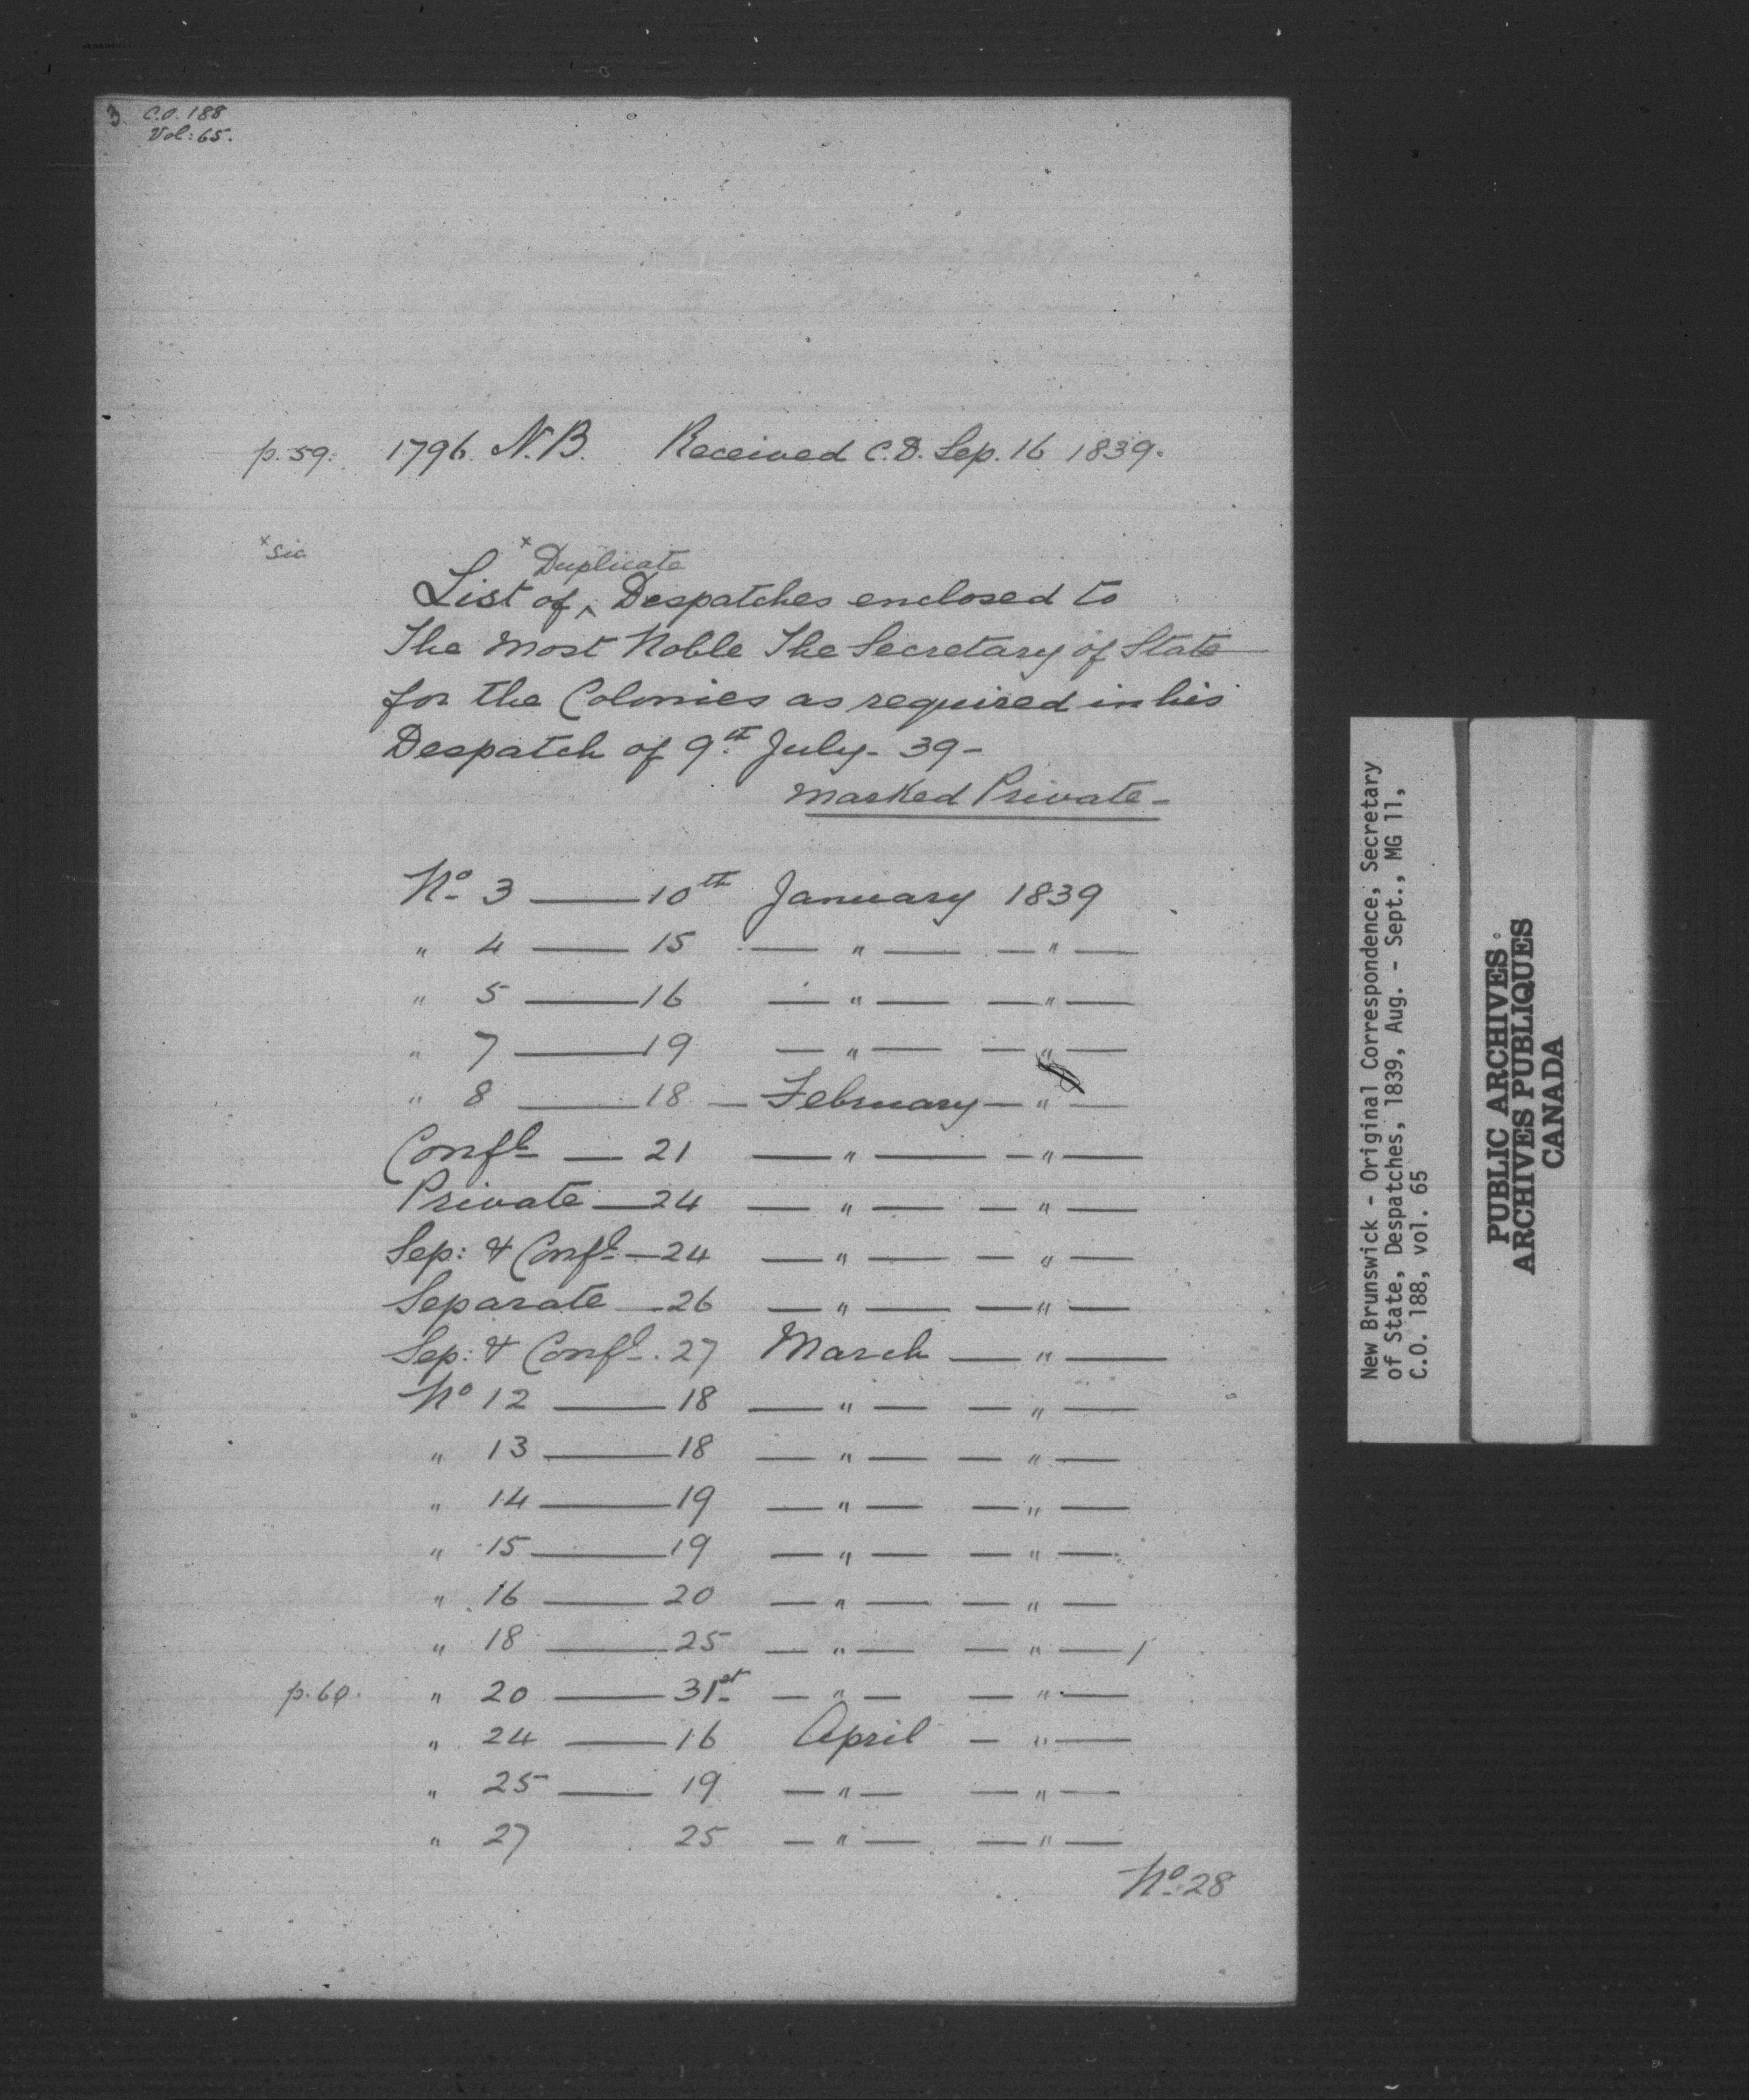 3. C.O. 188
Vol: 65.
p. 59. 1796. N.B. Received C.D. Sep. 16 1839.
x sic
x Duplicate
List of ‸ Despatches enclosed to
The Most Noble The Secretary of State
for the Colonies as required in his
Despatch of 9th July - 39 -
marked Private -
No. 3 — 10th January 1839
" 4 — 15 — " — — " —
" 5 — 16 — " — — " —
" 7 — 19 — " — — " —
" 8 — 18 — February — " —
Confl — 21 — " — — " —
Private — 24 — " — — " —
Sep: & Confl — 24 — " — — " —
Separate — 26 — " — — " —
Sep: & Confl. 27 March — " —
No 12 — 18 — " — — " —
" 13 — 18 — " — — " —
" 14 — 19 — " — — " —
" 15 — 19 — " — — " —
" 16 — 20 — " — — " —
" 18 — 25 — " — — " — /
p. 60. " 20 — 31st — " — — " —
" 24 — 16 April — " —
" 25 — 19 — " — — " —
" 27 25 — " — — " —
No. 28
New Brunswick - Original Correspondence, Secretary
of State, Despatches, 1839, Aug. - Sept., MG 11,
C.O. 188, vol. 65
PUBLIC ARCHIVES
ARCHIVES PUBLIQUES
CANADA